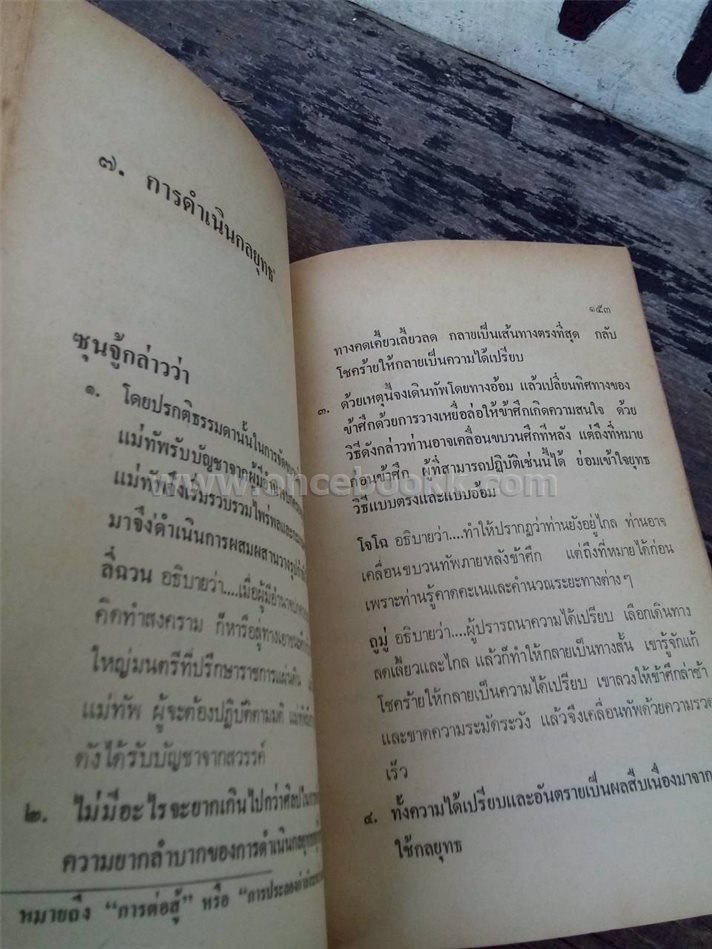 ๗. การดำเนินกลยุทธ
ซุนจู้กล่าวว่า
๑. โดยปรกติธรรมดานั้นในการจัด
แม่ทัพรับบัญชาจากผู้มีอำนาจ
แม่ทัพจึงเริ่มรวบรวมไพร่พลและ
มาจึงดำเนินการผสมผสานวางรูป
ลี่ฉวน อธิบายว่า....เมื่อผู้มีอำนาจ
คิดทำสงคราม ก็หารือลู่ทาง
ใหญ่มนตรีที่ปรึกษาราชการแผ่นดิน
แม่ทัพ ผู้จะต้องปฏิบัติตามมติ
ดังได้รับบัญชาจากสวรรค์
๒. ไม่มีอะไรจะยากเกินไปกว่าศิลป
ความยากลำบากของการดำเนินกลยุทธ
หมายถึง “การต่อสู้” หรือ “การประลอง
๑๕๓
ทางคดเคี้ยวเลี้ยวลด กลายเป็นเส้นทางตรงที่สุด กลับ
โชคร้ายให้กลายเป็นความได้เปรียบ
๓. ด้วยเหตุนี้จงเดินทัพโดยทางอ้อม แล้วเปลี่ยนทิศทางของ
ข้าศึกด้วยการวางเหยื่อล่อให้ข้าศึกเกิดความสนใจ ด้วย
วิธีดังกล่าวท่านอาจเคลื่อนขบวนศึกทีหลัง แต่ถึงที่หมาย
ก่อนข้าศึก ผู้ที่สามารถปฏิบัติเช่นนี้ได้ ย่อมเข้าใจยุทธ
วิธีแบบตรงและแบบอ้อม
www.oncebookk.com
โจโฉ อธิบายว่า....ทำให้ปรากฏว่าท่านยังอยู่ไกล ท่านอาจ
เคลื่อนขบวนทัพภายหลังข้าศึก แต่ถึงที่หมายได้ก่อน
เพราะท่านรู้คาดคะเนและคำนวณระยะทางต่างๆ
ถูมู่ อธิบายว่า....ผู้ปรารถนาความได้เปรียบ เลือกเดินทาง
ลดเลี้ยวและไกล แล้วก็ทำให้กลายเป็นทางสั้น เขารู้จักแก้
โชคร้ายให้กลายเป็นความได้เปรียบ เขาลวงให้ข้าศึกล่าช้า
และขาดความระมัดระวัง แล้วจึงเคลื่อนทัพด้วยความรวด
เร็ว
๔. ทั้งความได้เปรียบและอันตรายเป็นผลสืบเนื่องมาจาก
ใช้กลยุทธ